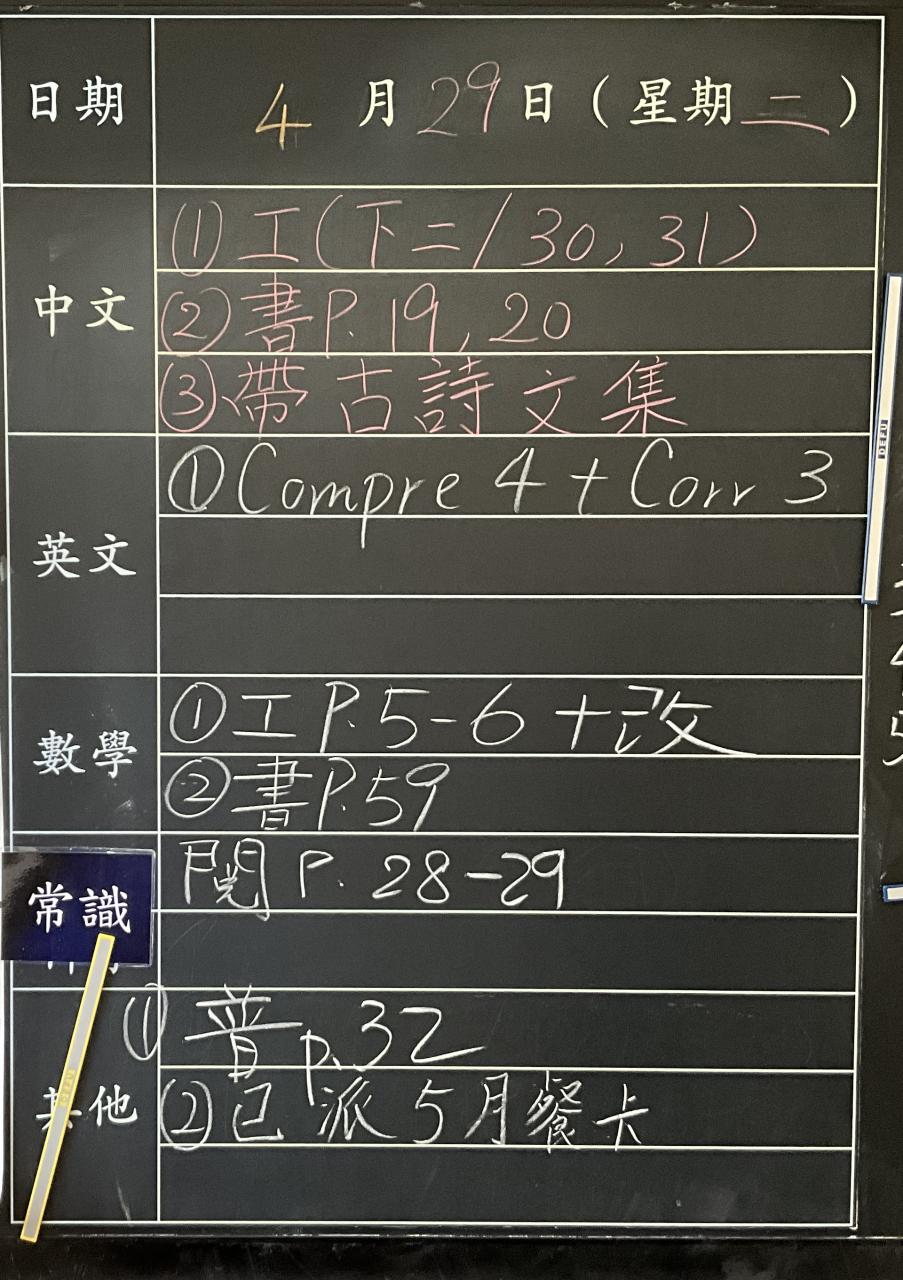 日期 4月29日(星期二)
中文
①工(下二/30,31)
②書P.19,20
③帶古詩文集
英文
①Compre 4 + Corr 3
數學
①工P.5-6+改
②書P.59
常識
閱P.28-29
其他
①普p.32
②已派5月餐卡
DEFU